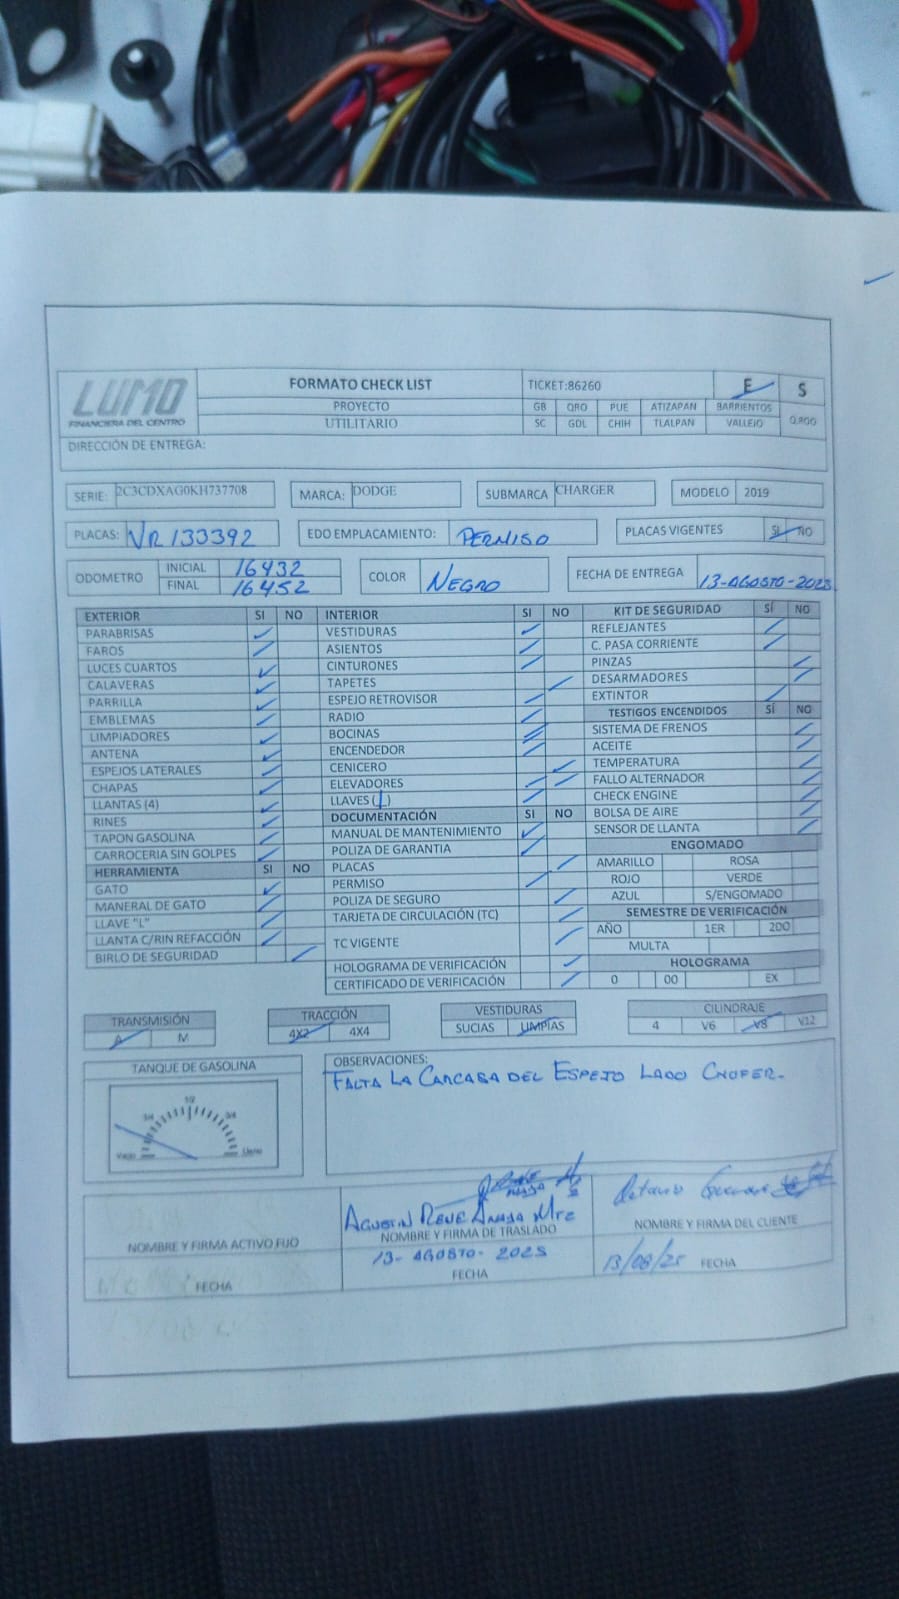 LUMO
FINANCIERA DEL CENTRO
FORMATO CHECK LIST
PROYECTO
UTILITARIO
TICKET:86260 E S
GB QRO PUE ATIZAPAN BARRIENTOS
SC GDL CHIH TLALPAN VALLEJO
DIRECCIÓN DE ENTREGA:
SERIE: 2C3CDXAG0KH737708 MARCA: DODGE SUBMARCA CHARGER MODELO 2019
PLACAS: VR133392 EDO EMPLACAMIENTO: PERMISO PLACAS VIGENTES SI NO
ODOMETRO INICIAL 16432
FINAL 16452
COLOR NEGRO FECHA DE ENTREGA 13-AGOSTO-2025
EXTERIOR SI NO
PARABRISAS
FAROS
LUCES CUARTOS
CALAVERAS
PARRILLA
EMBLEMAS
LIMPIADORES
ANTENA
ESPEJOS LATERALES
CHAPAS
LLANTAS (4)
RINES
TAPON GASOLINA
CARROCERIA SIN GOLPES
HERRAMIENTA SI NO
GATO
MANERAL DE GATO
LLAVE "L"
LLANTA C/RIN REFACCIÓN
BIRLO DE SEGURIDAD
INTERIOR SI NO
VESTIDURAS
ASIENTOS
CINTURONES
TAPETES
ESPEJO RETROVISOR
RADIO
BOCINAS
ENCENDEDOR
CENICERO
ELEVADORES
LLAVES (1)
DOCUMENTACIÓN SI NO
MANUAL DE MANTENIMIENTO
POLIZA DE GARANTIA
PLACAS
PERMISO
POLIZA DE SEGURO
TARJETA DE CIRCULACIÓN (TC)
TC VIGENTE
HOLOGRAMA DE VERIFICACIÓN
CERTIFICADO DE VERIFICACIÓN
KIT DE SEGURIDAD SÍ NO
REFLEJANTES
C. PASA CORRIENTE
PINZAS
DESARMADORES
EXTINTOR
TESTIGOS ENCENDIDOS SÍ NO
SISTEMA DE FRENOS
ACEITE
TEMPERATURA
FALLO ALTERNADOR
CHECK ENGINE
BOLSA DE AIRE
SENSOR DE LLANTA
ENGOMADO
AMARILLO ROSA
ROJO VERDE
AZUL S/ENGOMADO
SEMESTRE DE VERIFICACIÓN
AÑO 1ER 2DO
MULTA
HOLOGRAMA
0 00 EX
TRANSMISIÓN
A M
TRACCIÓN
4X2 4X4
VESTIDURAS
SUCIAS LIMPIAS
CILINDRAJE
4 V6 V8 V12
TANQUE DE GASOLINA
1/2
1/4 3/4
Vacio Lleno
OBSERVACIONES:
FALTA LA CARCASA DEL ESPEJO LADO CHOFER.
NOMBRE Y FIRMA ACTIVO FIJO
FECHA
AGUSTIN RENE ANAYA MTZ
NOMBRE Y FIRMA DE TRASLADO
13-AGOSTO-2025
FECHA
Octavio
NOMBRE Y FIRMA DEL CLIENTE
13/08/25 FECHA